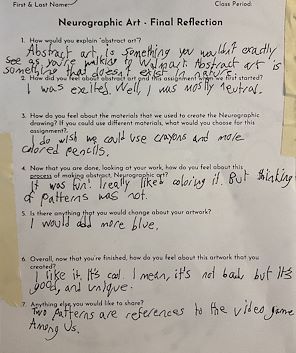 First & Last Name:
Class Period:
Neurographic Art - Final Reflection
1. How would you explain "abstract art"?
Abstract art, is something you wouldn't exactly
see as you're walking to Walmart. Abstract art is
something that doesn't exist in nature.
2. How did you feel about abstract art and this assignment when we first started?
I was excited. Well, I was mostly neutral.
3. How do you feel about the materials that we used to create the Neurographic
drawing? If you could use different materials, what would you choose for this
assignment?
I do wish we could use crayons and more
colored pencils.
4. Now that you are done, looking at your work, how do you feel about this
process of making abstract, Neurographic art?
It was fun! I really liked coloring it. But thinking
of patterns was not.
5. Is there anything that you would change about your artwork?
I would add more blue.
6. Overall, now that you're finished, how do you feel about this artwork that you
created?
I like it. It's cool. I mean, it's not bad, but It's
good, and unique.
7. Anything else you would like to share?
Two patterns are references to the video game
Among Us.